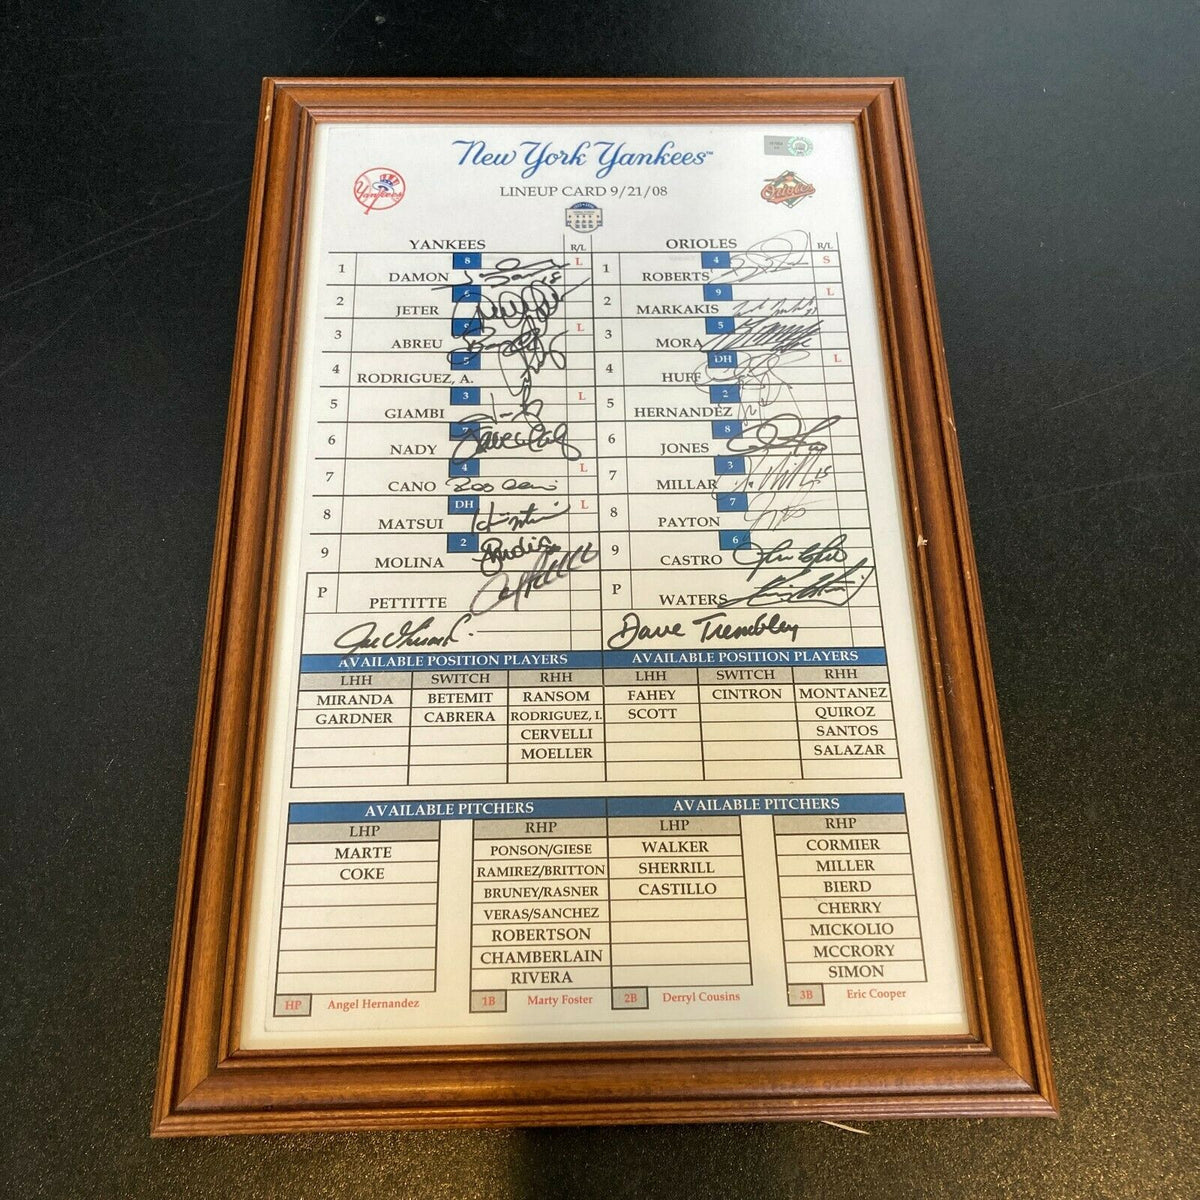 New York Yankees™
LINEUP CARD 9/21/08
Yankees
Orioles
YANKEES R/L
1 DAMON 8 L
2 JETER 6
3 ABREU 9 L
4 RODRIGUEZ, A. 5
5 GIAMBI 3 L
6 NADY 7
7 CANO 4 L
8 MATSUI DH L
9 MOLINA 2
P PETTITTE
ORIOLES R/L
1 ROBERTS 4 S
2 MARKAKIS 9 L
3 MORA 5
4 HUFF DH L
5 HERNANDEZ 2
6 JONES 8
7 MILLAR 3
8 PAYTON 7
9 CASTRO 6
P WATERS
Dave Trembley
AVAILABLE POSITION PLAYERS AVAILABLE POSITION PLAYERS
LHH SWITCH RHH LHH SWITCH RHH
MIRANDA BETEMIT RANSOM FAHEY CINTRON MONTANEZ
GARDNER CABRERA RODRIGUEZ, I. SCOTT QUIROZ
CERVELLI SANTOS
MOELLER SALAZAR
AVAILABLE PITCHERS AVAILABLE PITCHERS
LHP RHP LHP RHP
MARTE PONSON/GIESE WALKER CORMIER
COKE RAMIREZ/BRITTON SHERRILL MILLER
BRUNEY/RASNER CASTILLO BIERD
VERAS/SANCHEZ CHERRY
ROBERTSON MICKOLIO
CHAMBERLAIN MCCRORY
RIVERA SIMON
HP Angel Hernandez 1B Marty Foster 2B Derryl Cousins 3B Eric Cooper